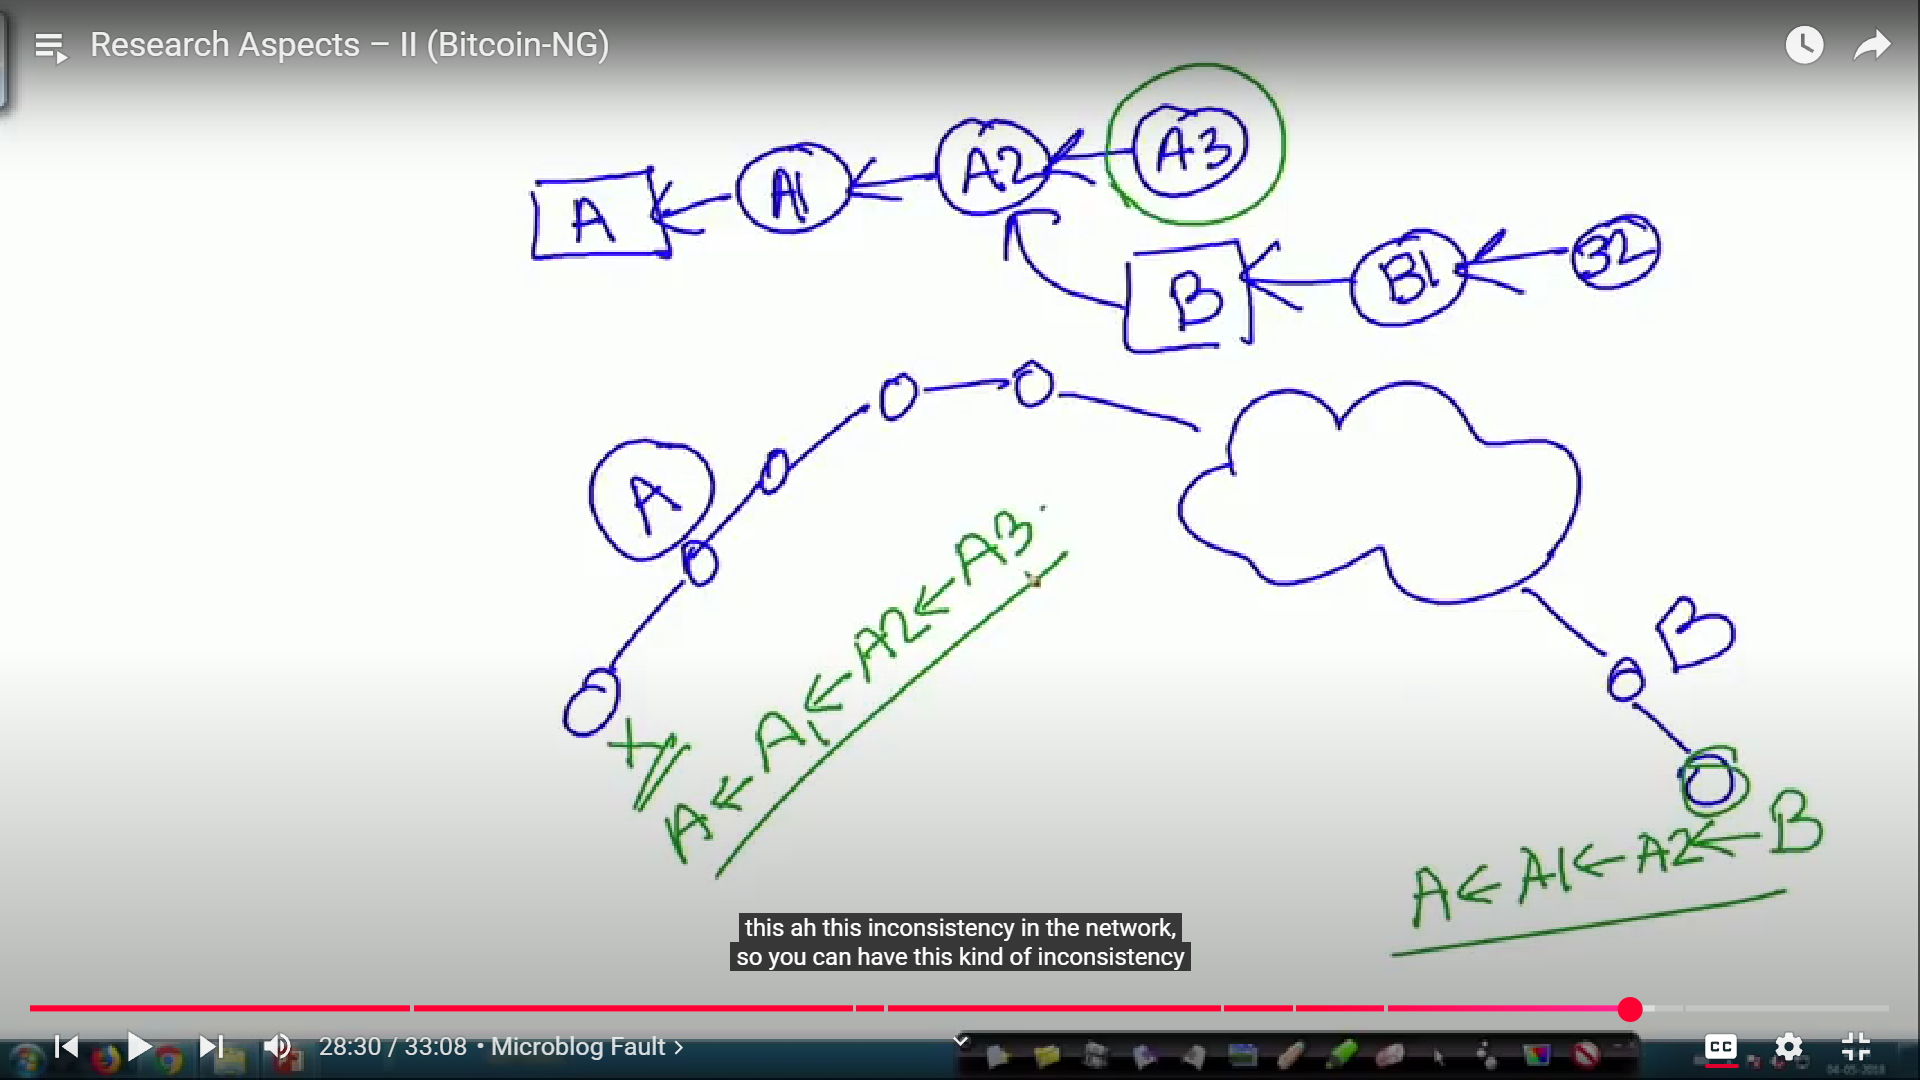 Research Aspects – II (Bitcoin-NG)
A A1 A2 A3
B B1 B2
A
A ← A1 ← A2 ← A3
B
A ← A1 ← A2 ← B
this ah this inconsistency in the network,
so you can have this kind of inconsistency
28:30 / 33:08 • Microblog Fault >
CC
04-05-2018